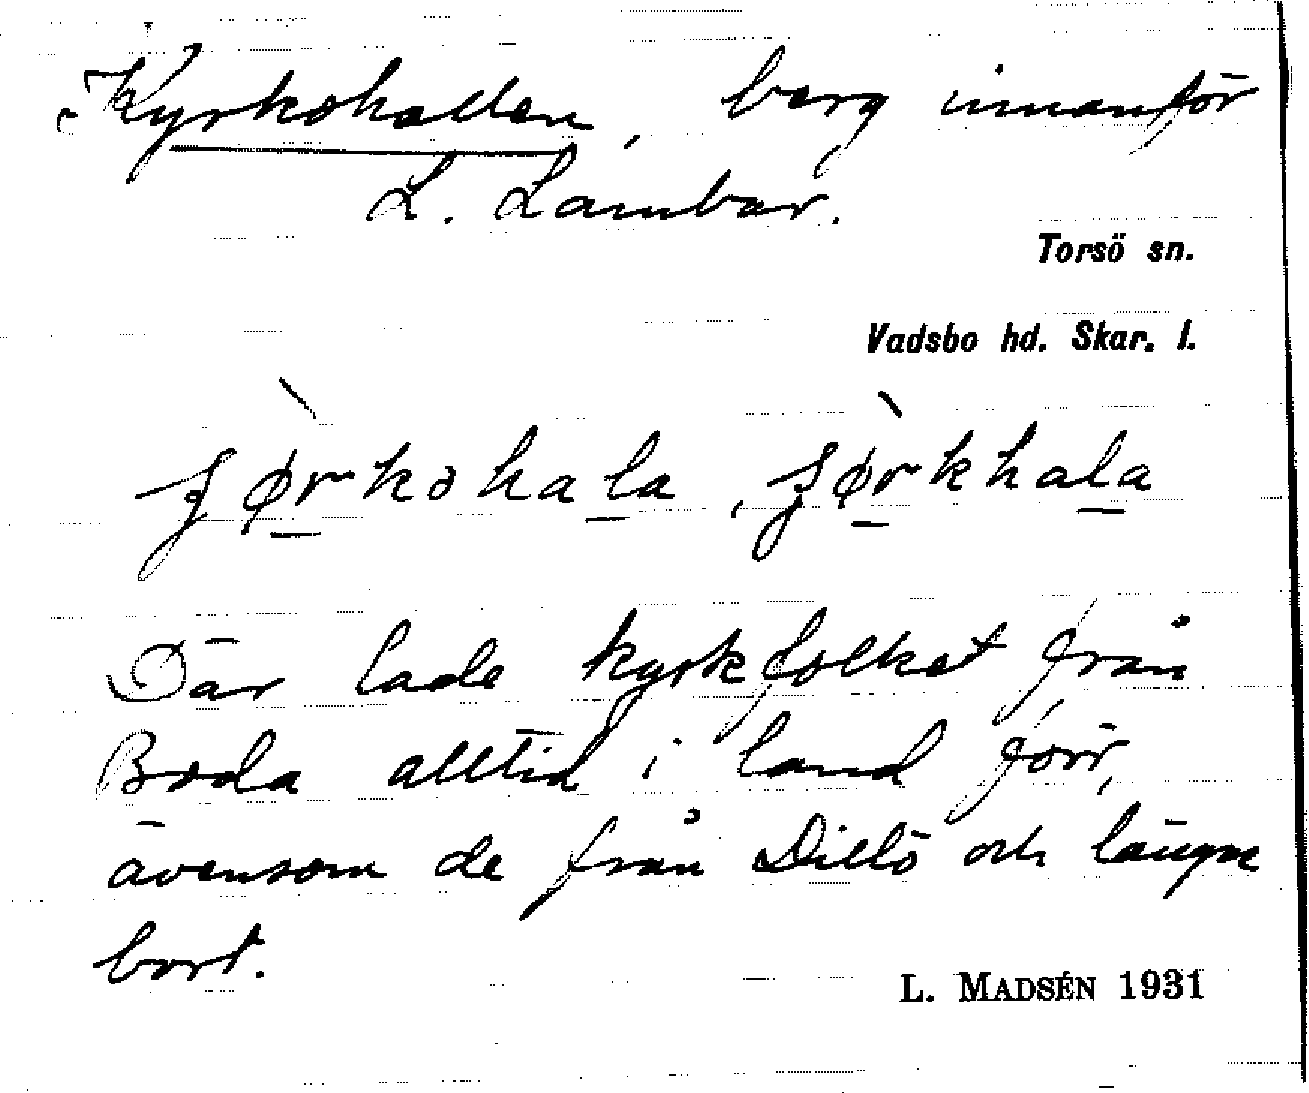 Kyrkohallen, berg innanför
L. Lambar.
Torsö sn.
Vadsbo hd. Skar. l.
Där lade kyrkfolket från
Boda alltid i land förr,
ävensom de från Dillö och längre
bort.
L. MADSÉN 1931